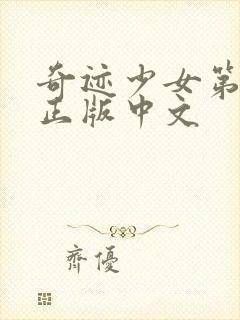 奇迹少女第
正版中文
齊優